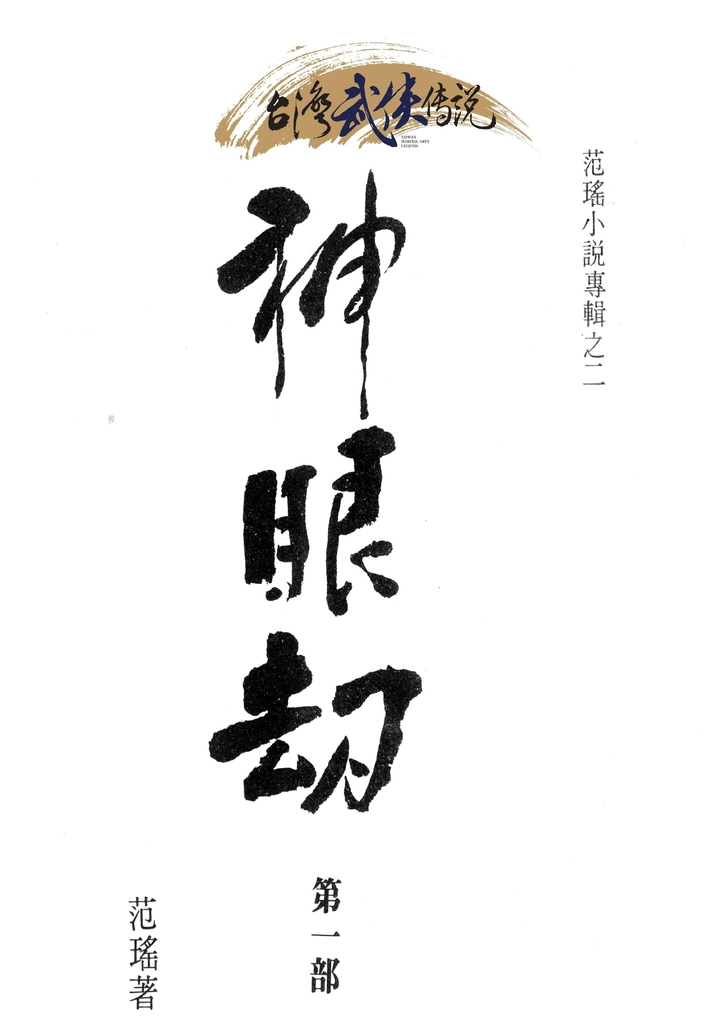 台灣武侠传説
TAIWAN
MARTIAL ARTS
LEGEND
范瑤小説專輯之二
神眼劫
第一部
范瑤著